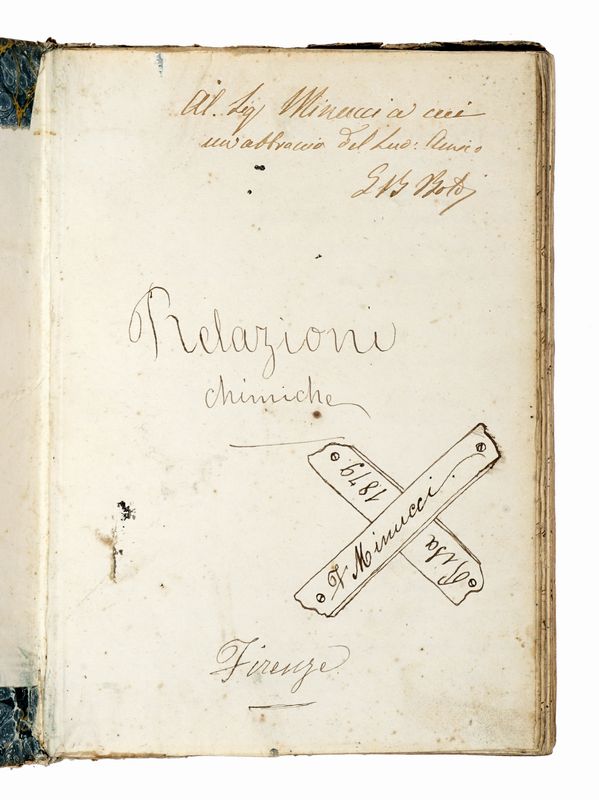 Al. Sig Minucci a cui
un'abbraccio del Suo: Amico
G B
Relazioni
chimiche
1879.
F Minucci.
Pisa
Firenze